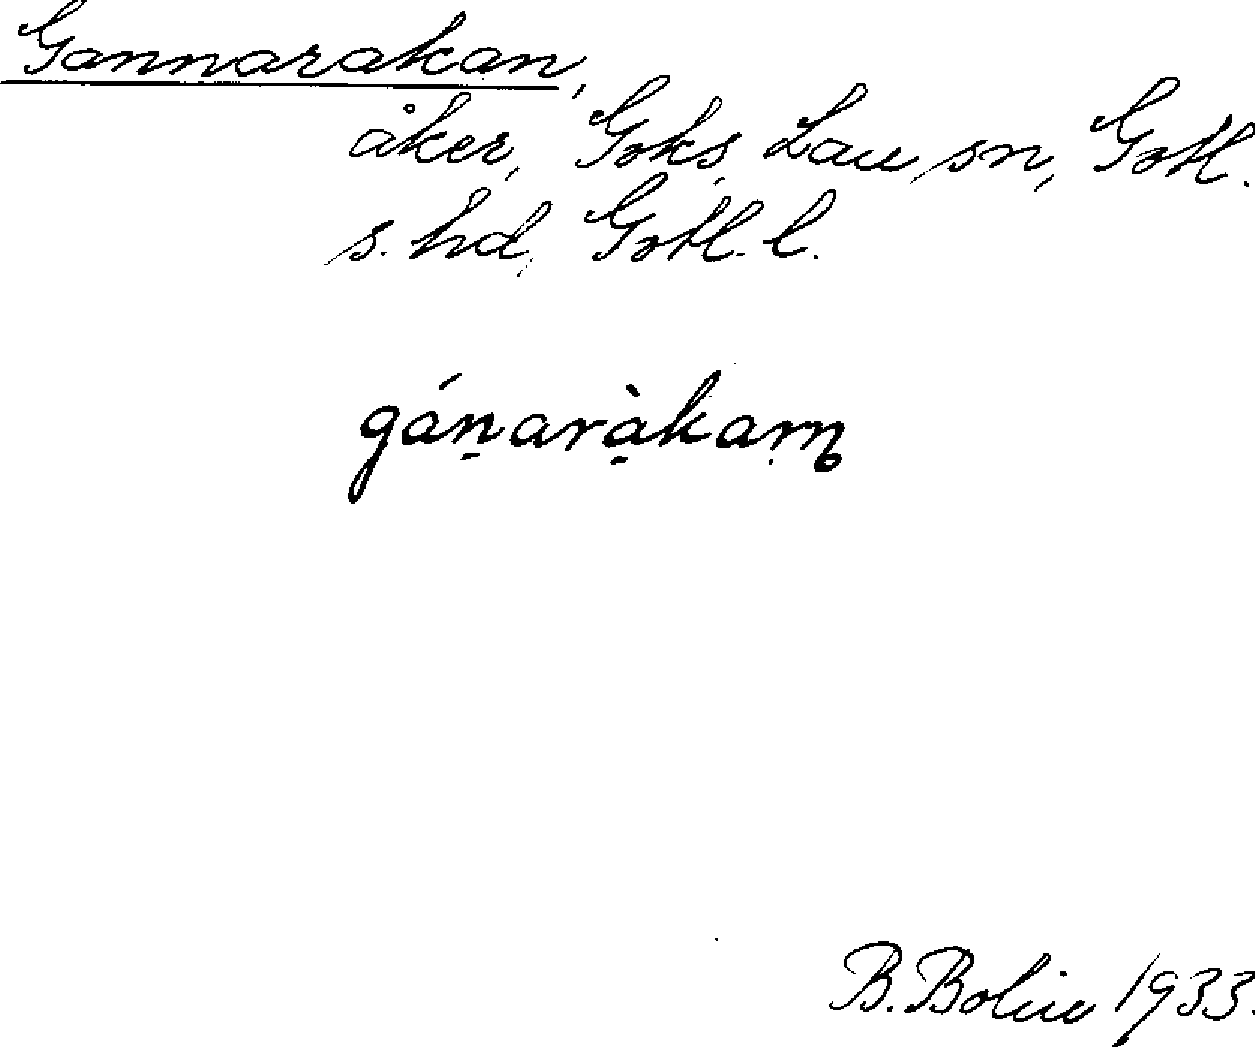 Gannarakan,
åker, Goks, Lau sn, Gotl.
s. hd, Gotl. l.
gánaràkaɲ
B. Bolin 1933.